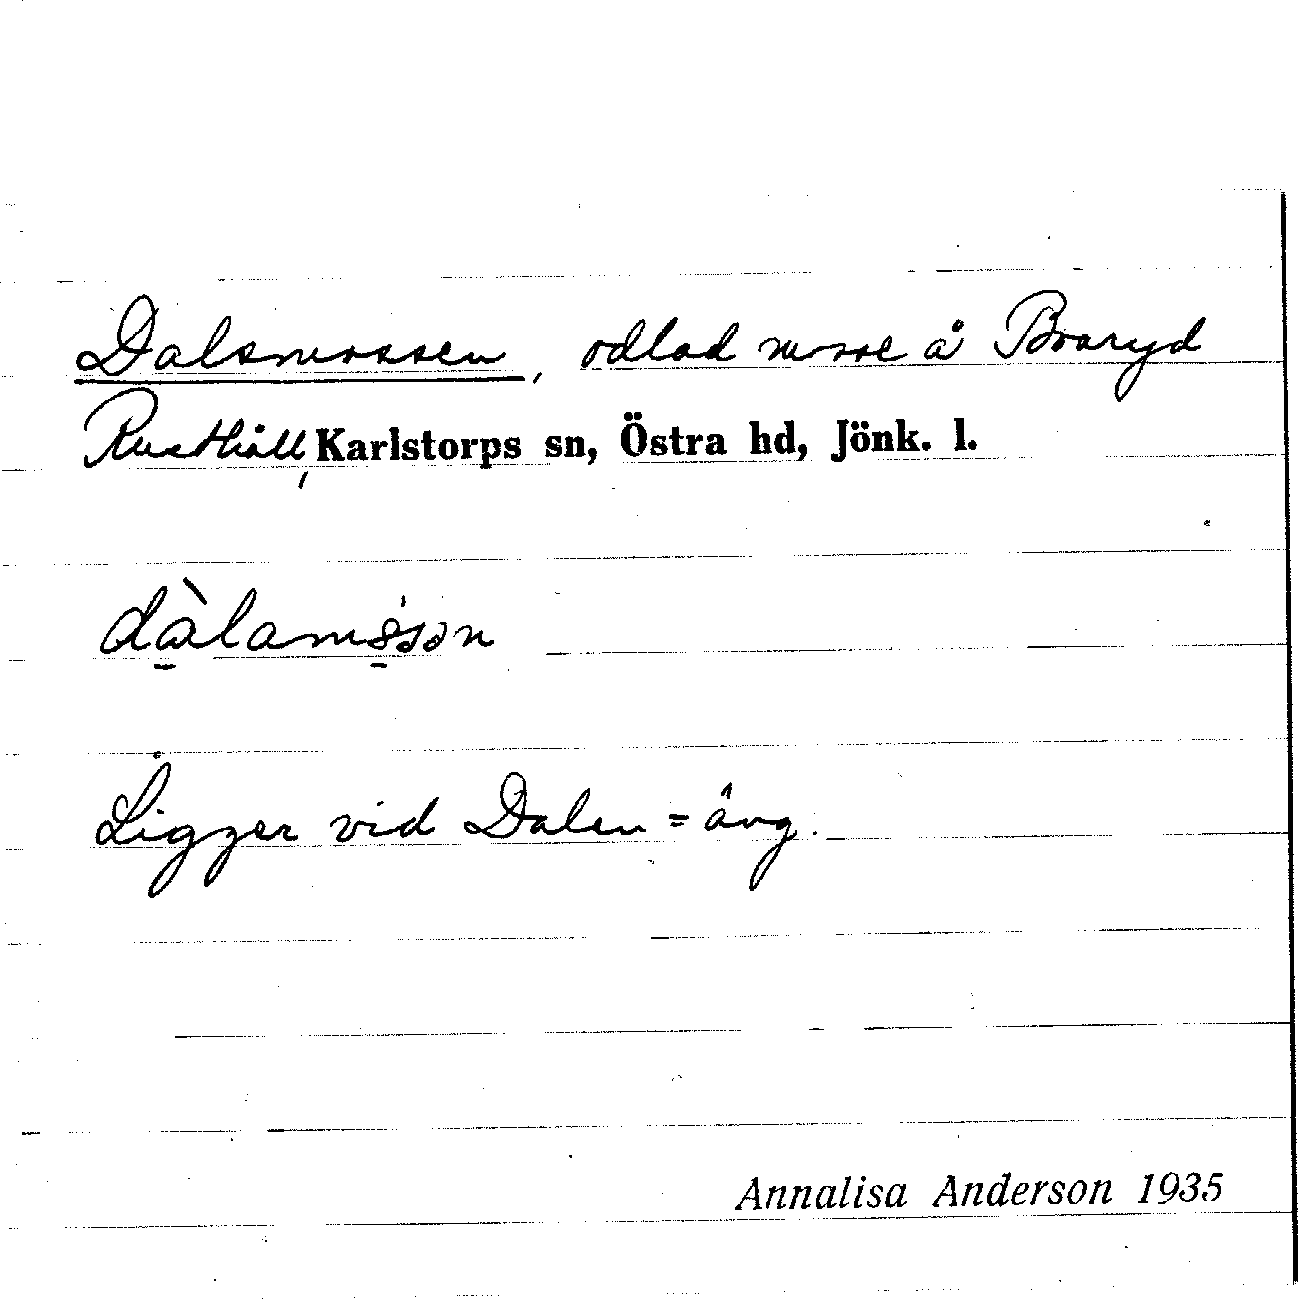 Dalsmossen, odlad mosse å Boaryd
Rusthåll, Karlstorps sn, Östra hd, Jönk. l.
dàlamåsən
Ligger vid Dalen = äng.
Annalisa Anderson 1935